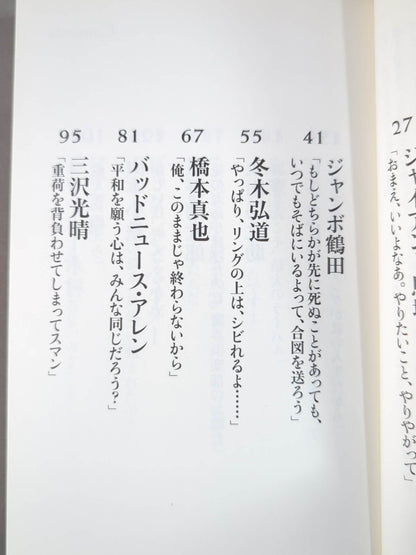 27
ジャイアント馬場
「おまえ、いいよなあ。やりたいこと、やりやがって」
41
ジャンボ鶴田
「もしどちらかが先に死ぬことがあっても、
いつでもそばにいるよって、合図を送ろう」
55
冬木弘道
「やっぱり、リングの上は、シビれるよ……」
67
橋本真也
「俺、このままじゃ終わらないから」
81
バッドニュース・アレン
「平和を願う心は、みんな同じだろう?」
95
三沢光晴
「重荷を背負わせてしまってスマン」